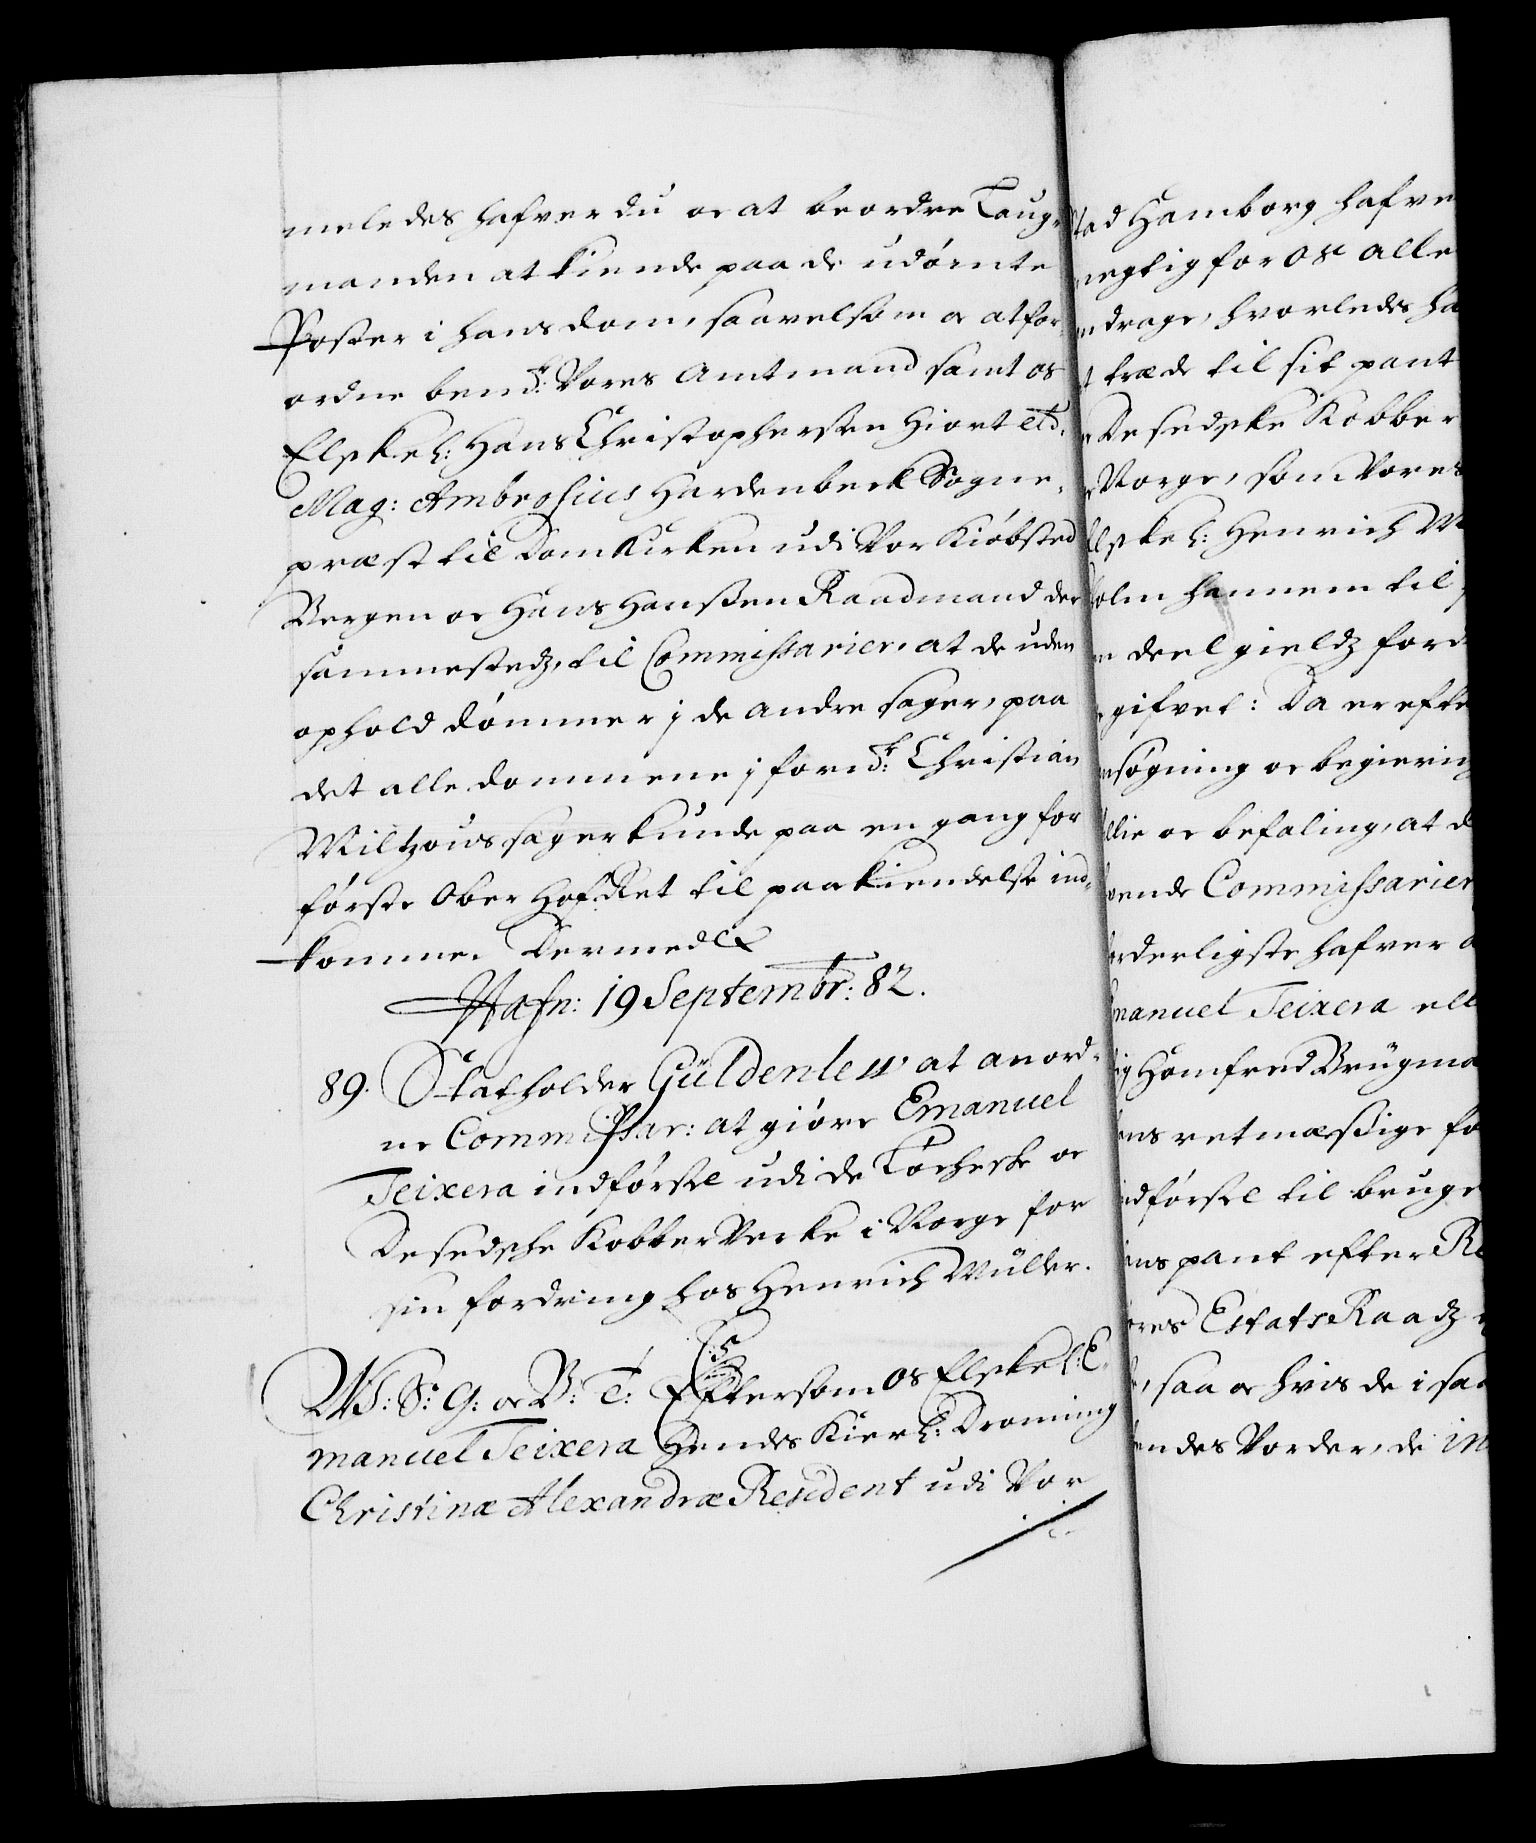 meledes hafver du oc at beordre Laug-
manden at kiende paa de udörnte
Poster i hans dom, saavelsom oc at for-
ordne bemdte: Vores Amtmand samt os
Elskel: Hans Christophersen Hiort etc.
Mag: Ambrosius Hardenbeck Sogne-
præst til Domkirken udi Vor Kiöbsted
Bergen oc Hans Hanssen Raadmand der
sammestedz, til Commissarier, at de uden
ophold dömmer j de andre sager, paa
det alle dommene j forndte: Christian
Miltzous sager kunde paa en gang for
förste Ober Hof Ret til paakiendelse ind-
komme. Dermed etc
Hafn: 19 Septembr: 82.
89. Statholder Güldenlew at anord-
ne Commissar: at giöre Emanuel
Teixera indförsel udi de Löcheske oc
Desedsche Kobber Verke i Norge for
sin fordring hos Henrich Müller.
W: S: G: oc V: T: Eftersom os Elskel: E-
manuel Teixera Hendes Kierl: Dronning
Christinæ Alexandræ Resident udi Vor
stad Hamborg hafve
negtig for os aller
ndrage, hvorledes ha
t træde til sit pant
Desedske Kobber
Norge, som Vores
Elskel: Henrich M
holm hannem til
en deel gieldz ford
gifvet: Da er efte
nsögning oc begiering
llie oc befaling, at d
vende Commissarier
orderligste hafver a
manuel Teixera ell
ig Homfred Brügma
ns retmæssige fo
ndförsel til bruge
ns pant efter Re
ores Estats Raadz
, saa oc hvis de i saa
endes Vorder, de in